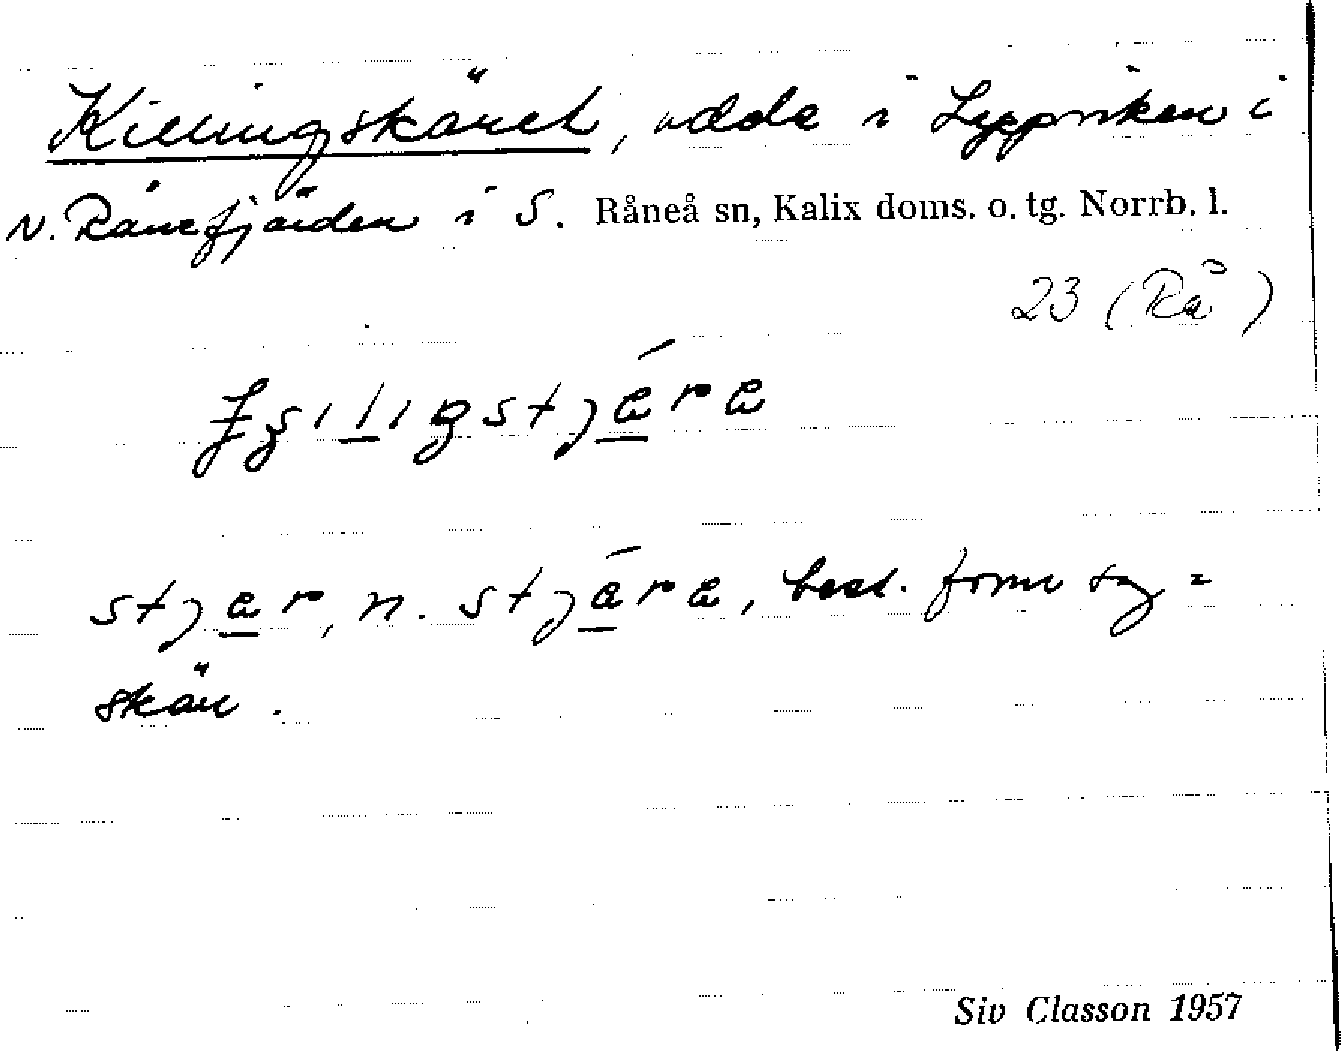 Killingskäret, udde i Lappviken i
N. Rånefjärden i S. Råneå sn, Kalix doms. o. tg. Norrb. l.
23 (Rå)
stjær, n. stjǽra, best. form sg =
skär.
Siv Classon 1957